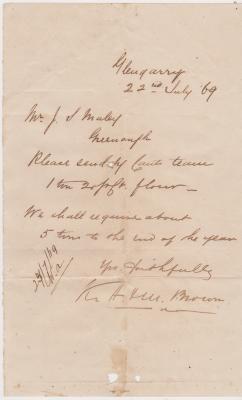 Glengarry
22nd July '69
Mr. J. S. Maley
Greenough
Please send by Cants team
1 ton flour
We shall require about
5 tons to the end of the year
Yrs. faithfully
K. & M. Brown